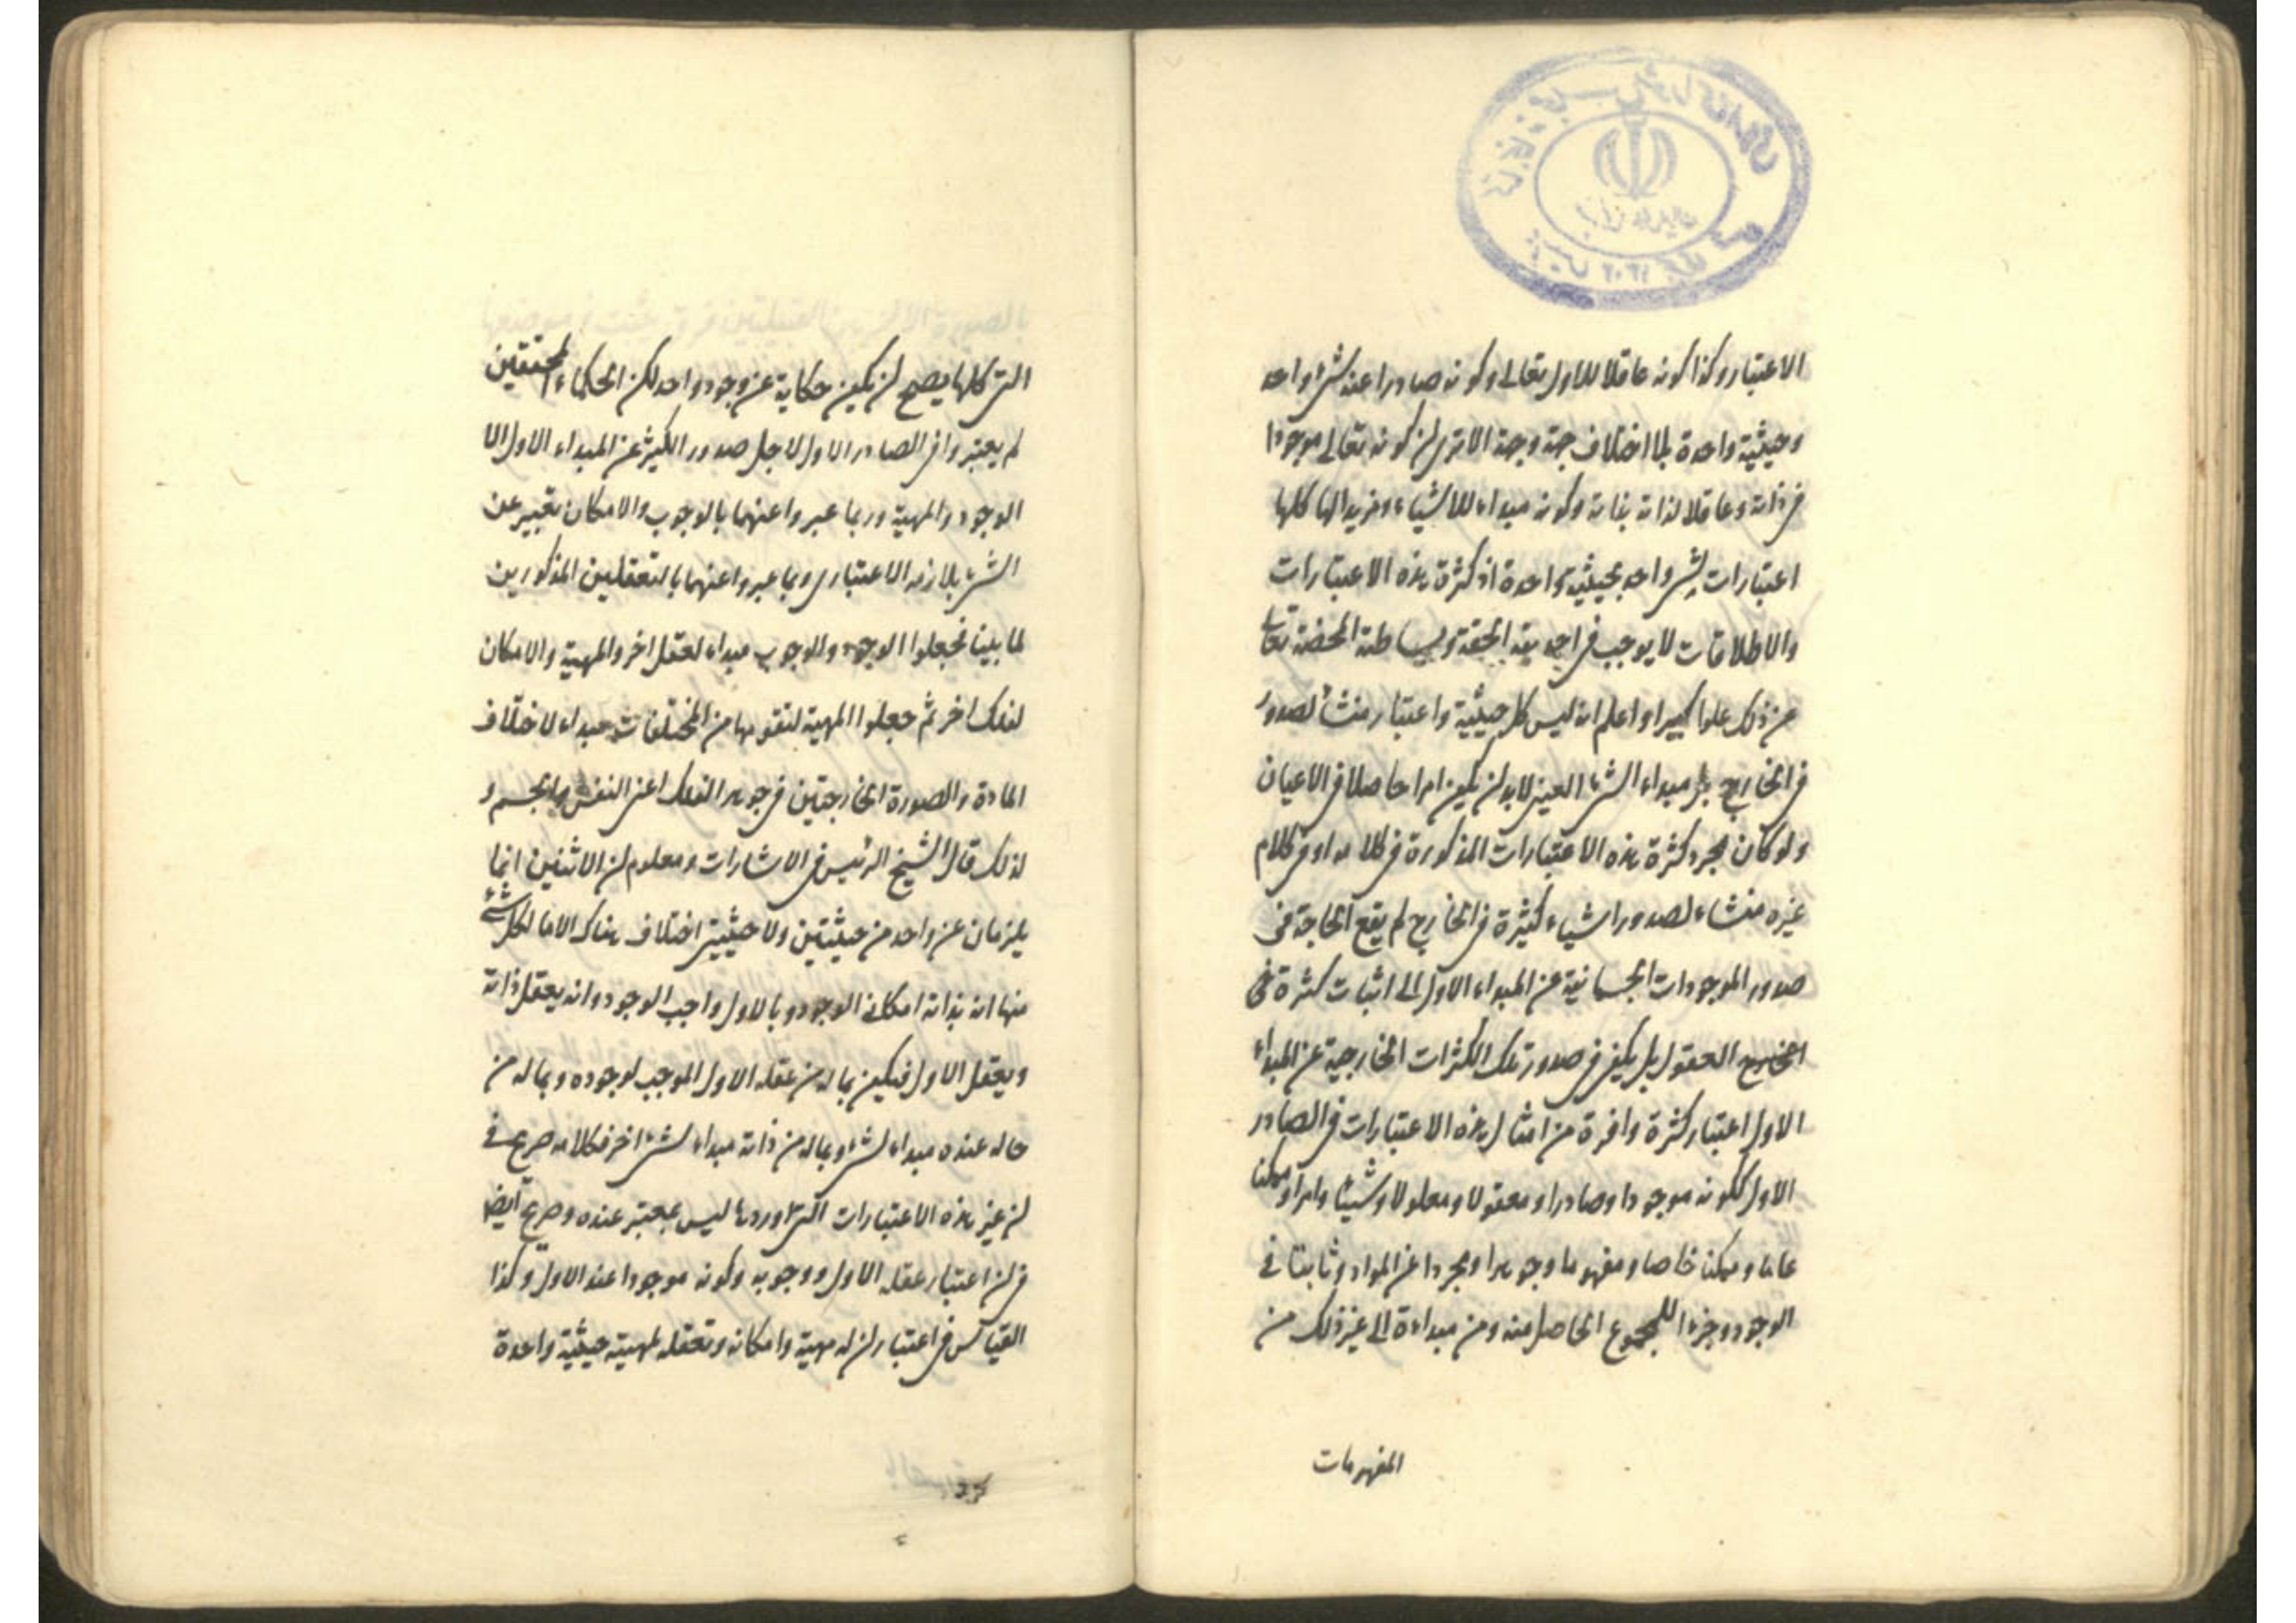 الاعتبار وكذا كونه عاقلا للاول تعالى وكونه صادرا عنه شئ واحد
وحيثية واحدة بلا اختلاف جهة وجهة الا ترى ان كونه تعالى موجودا
فى ذاته وعاقلا لذاته بذاته وكونه مبداء للاشياء ومريدا لها كلها
اعتبارات لشئ واحد بحيثية واحدة اذ كثرة هذه الاعتبارات
والاطلاقات لا يوجب فى احديته الحقة وبساطته المحضة تعالى
عن ذلك علوا كبيرا واعلم انه ليس كل حيثية واعتبار منشأ لصدور
فى الخارج بل مبداء الشئ العينى لابد ان يكون امرا حاصلا فى الاعيان
ولو كان مجرد كثرة هذه الاعتبارات المذكورة فى كلامه او فى كلام
غيره منشاء لصدور اشياء كثيرة فى الخارج لم يقع الحاجة فى
صدور الموجودات الجسمانية عن المبداء الاول الى اثبات كثرة فى
العقول بل يكفى فى صدور تلك الكثرات الخارجية عن المبداء
الاول اعتبار كثرة وافرة من امثال هذه الاعتبارات فى الصادر
الاول ككونه موجودا وصادرا ومعقولا ومعلولا وشيئا وامرا وممكنا
عاما وممكنا خاصا ومفهوما وجوهرا ومجردا عن المواد وثابتا فى
الوجود وجزءا للمجموع الحاصل منه ومن مبداءه الى غير ذلك من
المفهومات
التى كلها يصح ان يكون حكاية عن وجود واحد لكن الحكماء المحققين
لم يعتبروا فى الصادر الاول لاجل صدور الكثير عن المبداء الاول الا
الوجود والمهية وربما عبروا عنهما بالوجوب والامكان تعبير عن
الشئ بلازمه الاعتبارى وربما عبروا عنهما بالتعقلين المذكورين
لما بينا فجعلوا الوجود والوجوب مبداء لعقل اخر والمهية والامكان
لفلك اخر ثم جعلوا المهية لتقومها من المختلفات مبداء لاختلاف
المادة والصورة الخارجتين فى جوهر الفلك اعنى النفس والجسم و
لذلك قال الشيخ الرئيس فى الاشارات ومعلوم ان الاثنين انما
يلزمان عن واحد من حيثيتين ولا حيثيتى اختلاف هناك الا ما لكل شئ
منها انه بذاته امكانى الوجود وبالاول واجب الوجود وانه يعقل ذاته
ويعقل الاول فيكون بما له من عقله الاول الموجب لوجوده وبما له من
حاله عنده مبداء لشئ وبما له من ذاته مبداء لشئ اخر فكلامه صريح فى
ان غير هذه الاعتبارات التى اوردها ليس بمعتبر عنده وصريح ايضا
فى ان اعتبار عقله الاول ووجوبه وكونه موجودا عند الاول وكذا
القياس فى اعتبار ان له مهية وامكانه وتعقله لمهيته حيثية واحدة